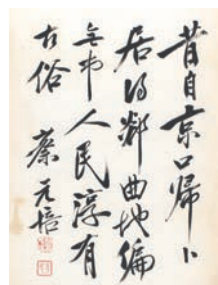 昔自京口歸卜
居得鄰曲地偏
無市人民淳有
古俗 蔡元培